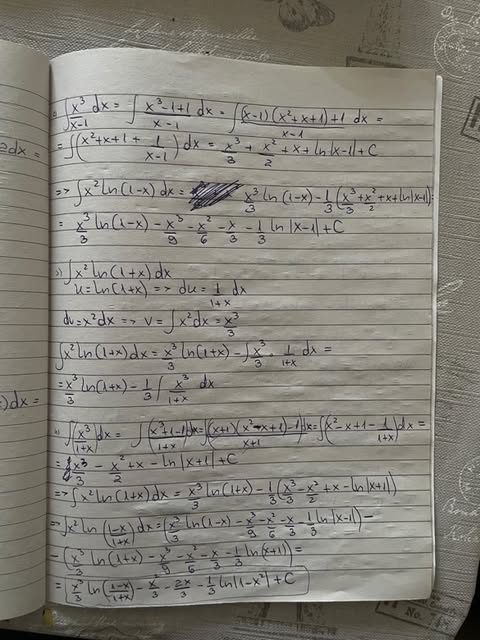 = ∫ x³/(x-1) dx = ∫ (x³-1+1)/(x-1) dx = ∫ ((x-1)(x²+x+1)+1)/(x-1) dx =
= ∫ (x²+x+1 + 1/(x-1)) dx = x³/3 + x²/2 + x + ln|x-1| + C
=> ∫ x² ln(1-x) dx = x³/3 ln(1-x) - 1/3 (x³/3 + x²/2 + x + ln|x-1|) =
= x³/3 ln(1-x) - x³/9 - x²/6 - x/3 - 1/3 ln|x-1| + C
∫ x² ln(1+x) dx
u = ln(1+x) => du = 1/(1+x) dx
dv = x² dx => v = ∫ x² dx = x³/3
∫ x² ln(1+x) dx = x³/3 ln(1+x) - ∫ x³/3 · 1/(1+x) dx =
= x³/3 ln(1+x) - 1/3 ∫ x³/(1+x) dx
∫ (x³/(1+x)) dx = ∫ (x³+1-1)/(1+x) dx = ∫ ((x+1)(x²-x+1)-1)/(x+1) dx = ∫ (x²-x+1 - 1/(1+x)) dx =
= x³/3 - x²/2 + x - ln|x+1| + C
=> ∫ x² ln(1+x) dx = x³/3 ln(1+x) - 1/3 (x³/3 - x²/2 + x - ln|x+1|)
=> ∫ x² ln((1-x)/(1+x)) dx = (x³/3 ln(1-x) - x³/9 - x²/6 - x/3 - 1/3 ln|x-1|) -
- (x³/3 ln(1+x) - x³/9 - x²/6 - x/3 - 1/3 ln(x+1)) =
= x³/3 ln((1-x)/(1+x)) - 2x/3 - 1/3 ln|1-x²| + C
dx =
)dx =